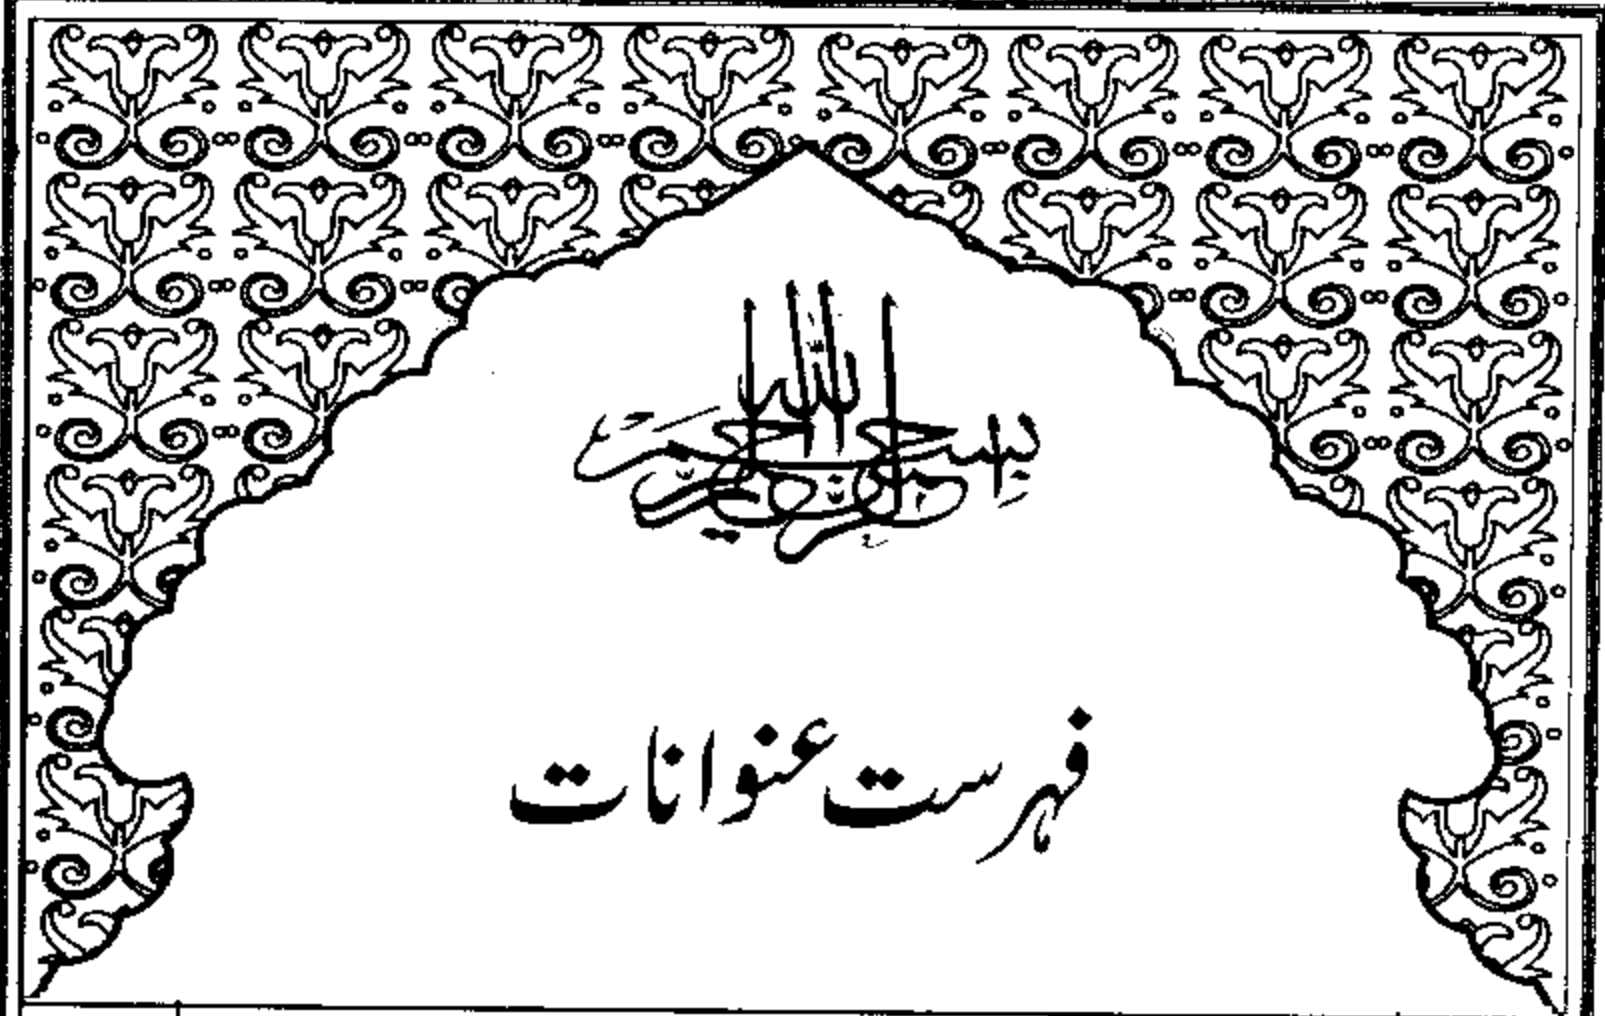 بسم الله الرحمن الرحيم
فہرست عنوانات